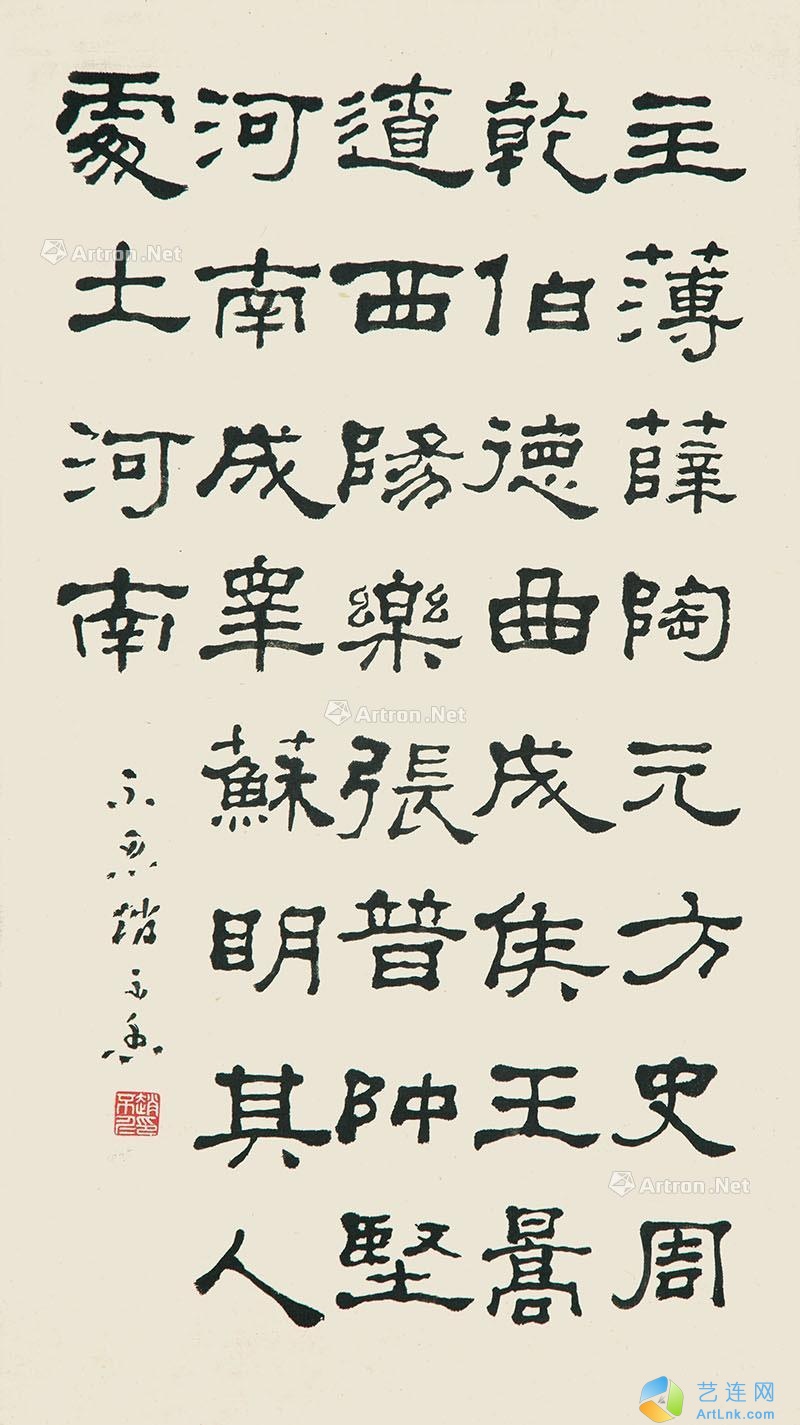 主薄薛陶元方史周
乾伯德曲成侯王暠
遼西陽樂張普仲堅
河南成睾蘇明其人
處士河南
Artron.Net
Artron.Net
Artron.Net
艺连网
ArtLnk.com